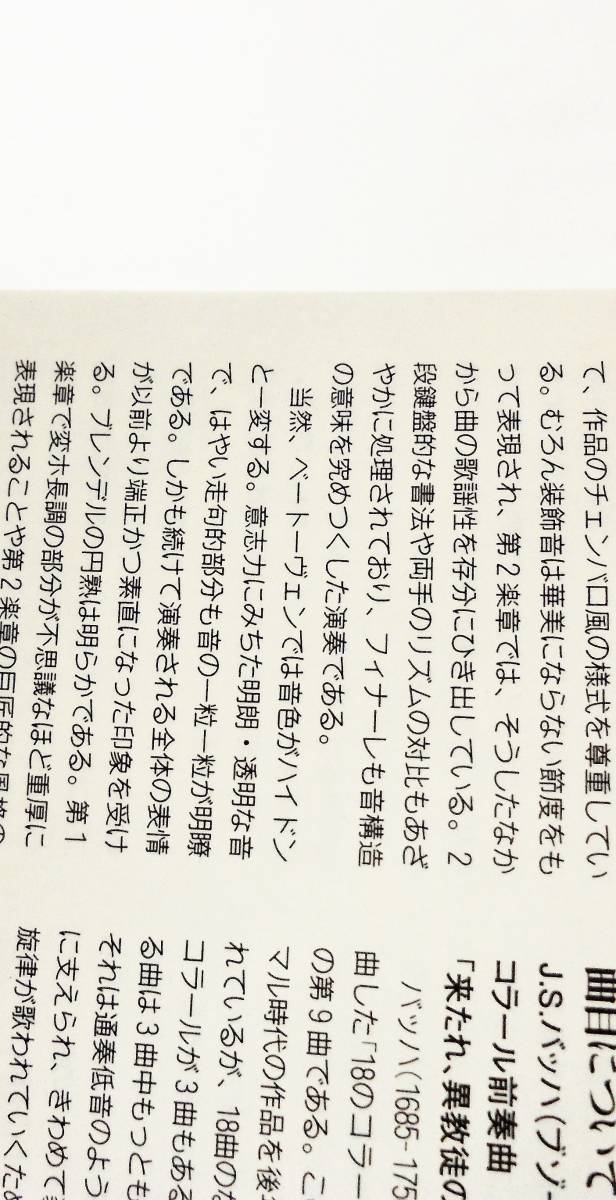 て、作品のチェンバロ風の様式を尊重してい
る。むろん装飾音は華美にならない節度をも
って表現され、第2楽章では、そうしたなか
から曲の歌謡性を存分にひき出している。2
段鍵盤的な書法や両手のリズムの対比もあざ
やかに処理されており、フィナーレも音構造
の意味を究めつくした演奏である。
当然、ベートーヴェンでは音色がハイドン
と一変する。意志力にみちた明朗・透明な音
で、はやい走句的部分も音の一粒一粒が明瞭
である。しかも続けて演奏される全体の表情
が以前より端正かつ素直になった印象を受け
る。ブレンデルの円熟は明らかである。第1
楽章で変ホ長調の部分が不思議なほど重厚に
表現されることや第2楽章の巨匠的な風格の
曲目について
J.S.バッハ(ブゾ
コラール前奏曲
「来たれ、異教徒の
バッハ(1685-175
曲した「18のコラー
の第9曲である。こ
マル時代の作品を後
れているが、18曲の
コラールが3曲もある
る曲は3曲中もっとも
それは通奏低音のよう
に支えられ、きわめて
旋律が歌われていくため